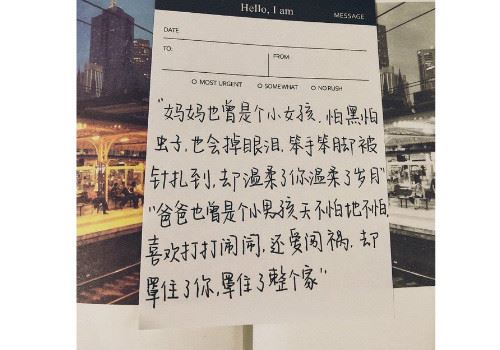 Hello, I am
MESSAGE
DATE
TO:
FROM
O MOST URGENT O SOMEWHAT O NO RUSH
“妈妈也曾是个小女孩.怕黑怕
虫子,也会掉眼泪,笨手笨脚却被
针扎到,却温柔了你温柔了岁月”
“爸爸也曾是个小男孩天不怕地不怕,
喜欢打打闹闹,还爱闯祸,却
罩住了你,罩住了整个家”